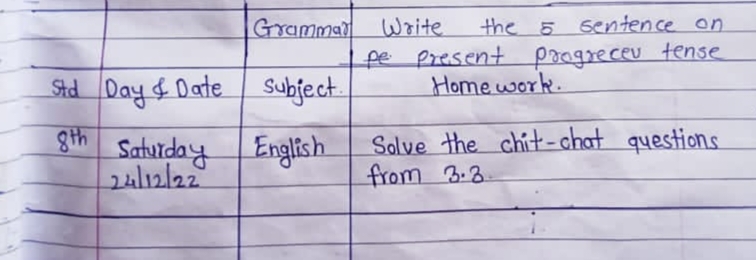 Grammar Write the 5 sentence on
pe present progrecev tense
Std Day & Date Subject. Homework.
8th Saturday English Solve the chit-chat questions
24/12/22 from 3.3.